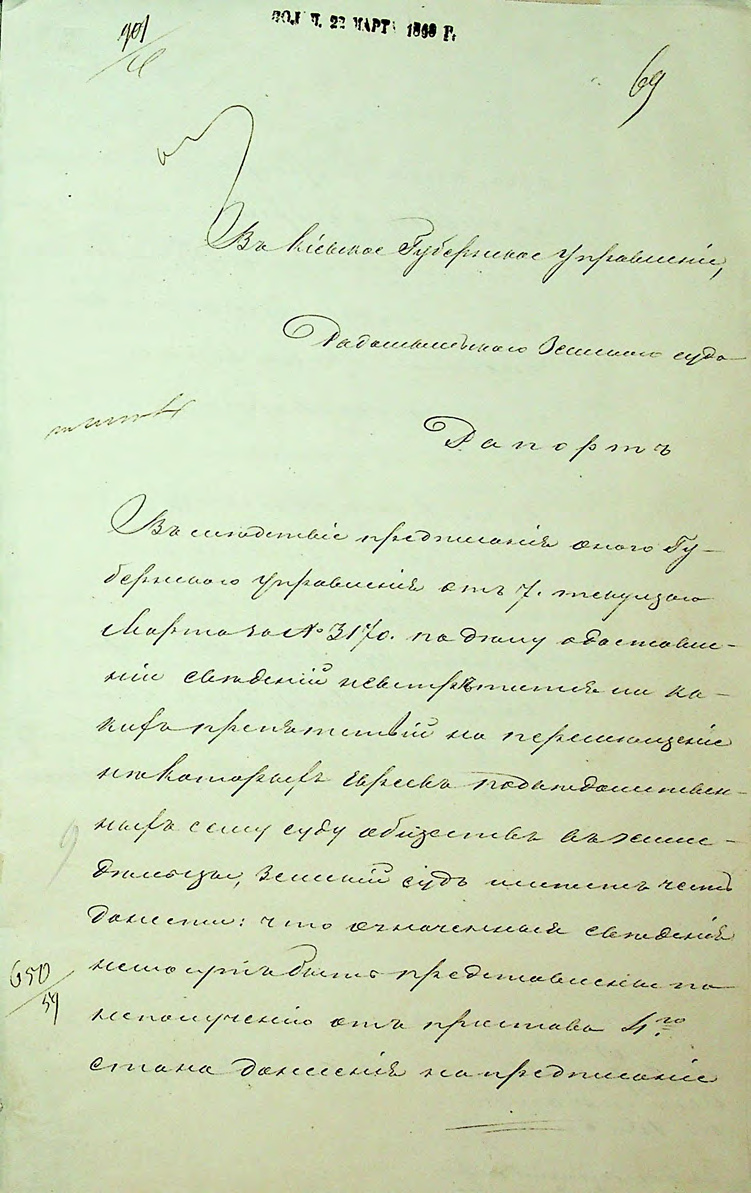 901
ПОЛУЧ. 22 МАРТА 1860 Г.
69
Въ Кіевское Губернское Управленіе,
Радомысльскаго Земскаго суда
Рапортъ
Въ слѣдствіе предписанія онаго Гу-
бернскаго Управленія отъ 7. текущаго
Марта за № 3170. по дѣлу о доставле-
ніи свѣдѣній невстрѣтится ли ка-
кихъ препятствій на перечисленіе
нѣкоторыхъ Евреевъ подвѣдомствен-
ныхъ сему суду обществъ въ земле-
дѣльцы, Земскій судъ имѣетъ честь
донести: что означенныя свѣдѣнія
немогутъ быть представлены по
неполученію отъ пристава 4.го
650/59
стана донесенія на предписаніе